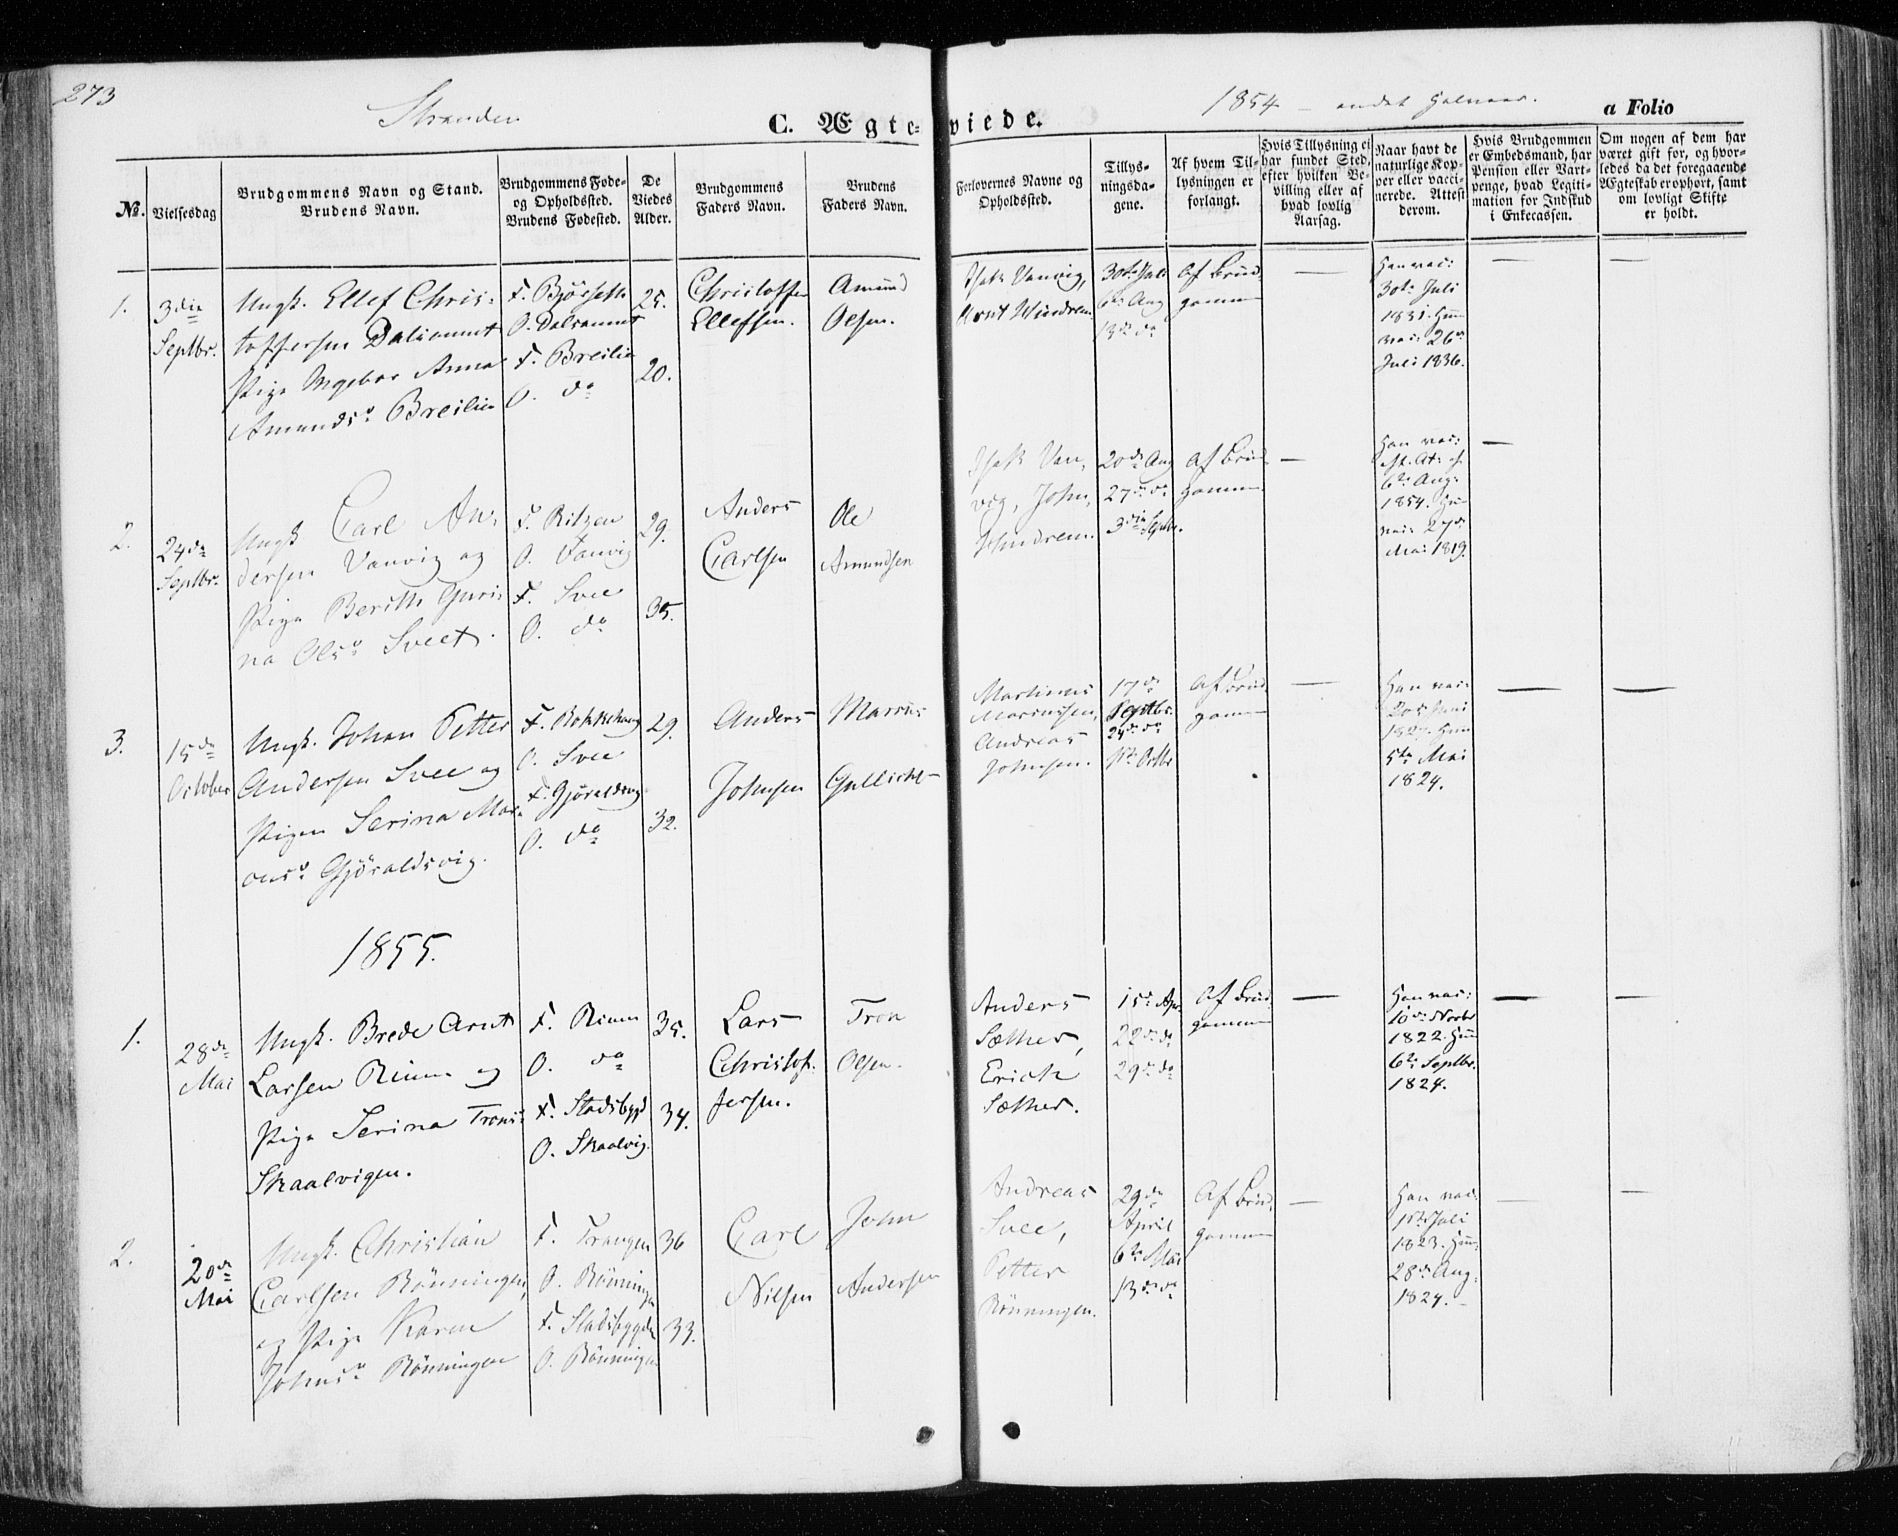 273
Stranden
C. Ægte-
viede.
1854 – andet Halvaar.
a Folio
No.
Vielsesdag
Brudgommens Navn og Stand.
Brudens Navn.
Brudgommens Føde-
og Opholdssted.
Brudens Fødested.
De
Viedes
Alder.
Brudgommens
Faders Navn.
Brudens
Faders Navn.
Forlovernes Navne og
Opholdssted.
Tillys-
ningsda-
gene.
Af hvem Til-
lysningen er
forlangt.
Hvis Tillysning ei
har fundet Sted,
efter hvilken Be-
villing eller af
hvad lovlig
Aarsag.
Naar havt de
naturlige Kop-
per eller vacci-
nerede. Attest
derom.
Hvis Brudgommen
er Embedsmand, har
Pension eller Vart-
penge, hvad Legiti-
mation for Indskud
i Enkecassen.
Om nogen af dem har
været gift før, og hvor-
ledes da det foregaaende
Ægteskab er ophørt, samt
om lovligt Skifte
er holdt.
1.
3die
Septbr.
Ungk. Ellef Chris-
toffersen Dalsaunet
Pige Ingebor Anna
Amundsd. Breilien
F. Bjørseth
O. Dalsaunet
F. Breilie
O. do
25.
20.
Christoffer
Ellefsen.
Amund
Olsen.
Isak Vanvig,
Arnt Windrem
30te Juli
6te Aug
13de do
Af Brud-
gommen
Han vac:
30te Juli
1831. Hun
vac: 26de
Juli 1836.
2.
24de
Septbr.
Ungk Carl An-
dersen Vanvig og
Pige Berith Guri-
na Olsd. Sveet.
F. Ritzen
O. Vanvig
F. Svee
O. do
29.
35.
Anders
Carlsen
Ole
Amundsen
Isak Van-
vig, John
Hindrem.
20de Aug
27de do
3die Septbr.
Af Brud-
gommen
Han vac:
6te Aug:
1854. Hun
vac: 27de
Mai 1819.
3.
15de
October
Ungk. Johan Petter
Andersen Svee og
Pigen Serina Mar-
cusd. Gjøraldsvig.
F. Rokkehaug
O. Svee
F. Gjøraldsvig
O. do
29.
32.
Anders
Johnsen
Marcus
Gullichs-
Martinus
Marcussen,
Andreas
Johnsen.
17de
Septbr.
24de do
1ste Octbr
Af Brud-
gommen
Han vac:
5te Mai
1824.
1855.
1.
28de
Mai
Ungk. Brede Arnt
Larsen Rium og
Pige Serina Tronsd.
Skaalvigen.
F. Rium
O. do
F. Stadsbygd
O. Skaalvig.
35.
34.
Lars
Christof-
fersen.
Tron
Olsen.
Anders
Sæther,
Erich
Sæther.
15de Apr
22de do
29de do
Af Brud-
gommen
Han vac:
10de Novbr
1822. Hun
6te Septbr.
1824.
2.
20de
Mai
Ungk. Christian
Carlsen Rönningen,
og Pige Karen
Johnsd. Rönningen
F. Trangen
O. Rönningen
F. Stadsbygden
O. Rönningen
36
33.
Carl
Nilsen
John
Andersen
Andreas
Svee,
Petter
Rönningen.
29de
April
6te Mai
13de do
Af Brud-
gommen
Han vac.
1ste Juli
1823. Hun
28de Aug.
1824.